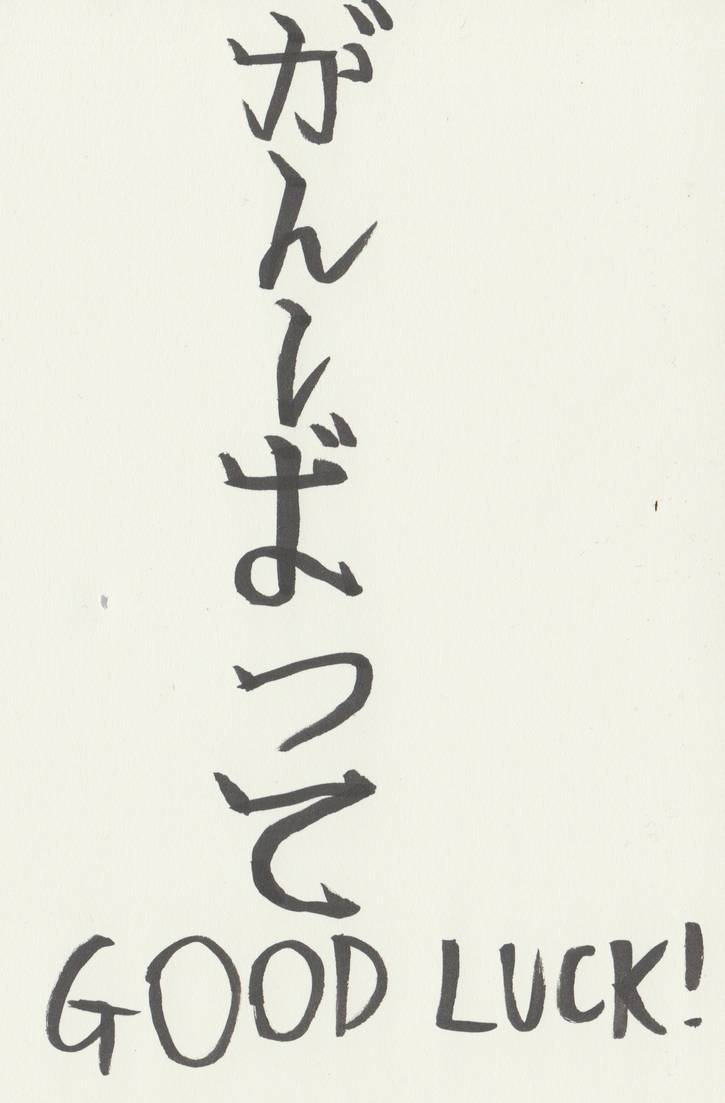 がんばって
GOOD LUCK!